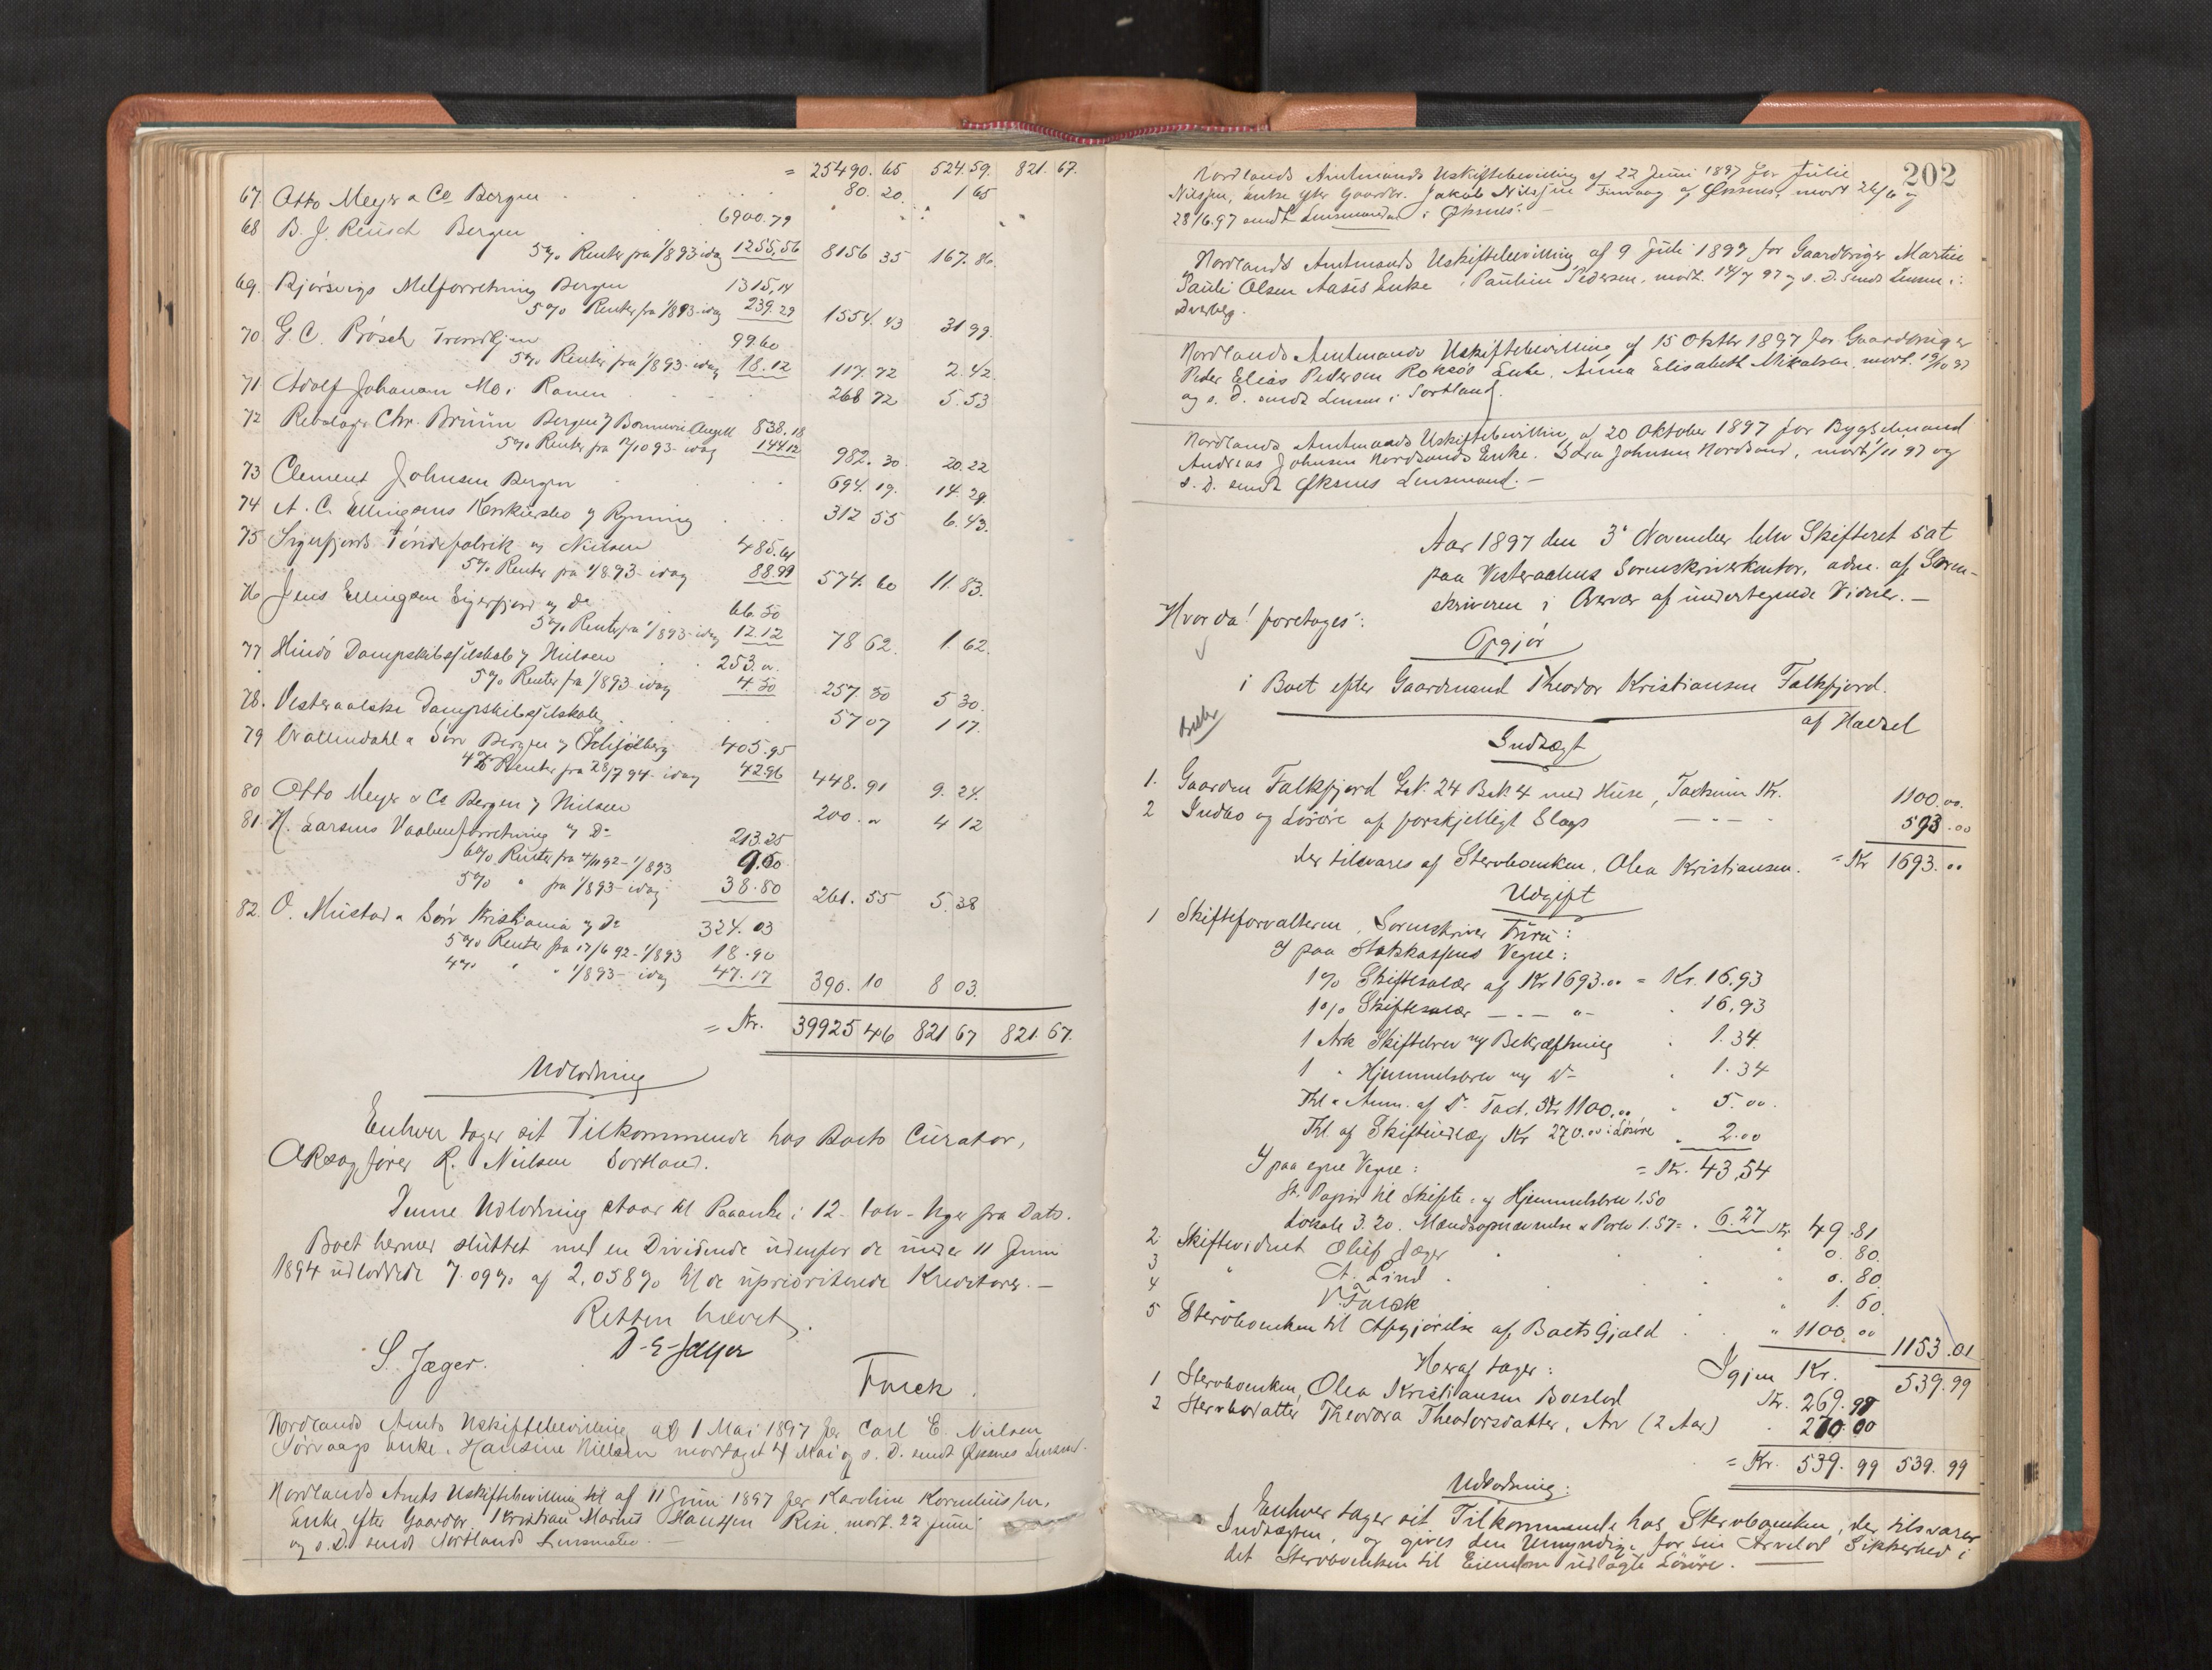 = 25490.65 524.59. 821.67.
67. Otto Meyer & Co Bergen 80.20. 1 65
68 B. J. Reusch Bergen 6900.79
5% Renter fra 1/893 idag 1255,56 8156 35 167.86.
69. Bjørsvigs Melforretning Bergen 1315,14
5% Renter fra 1/893- idag 239.29 1554.43 31 99.
70 G. C. Brøsch Trondhjem 99.60
5% Renter fra 1/893- idag 18.12 117.72 2.42.
71 Adolf Johansen Mo i Ranen 268 72 5.53
72 Rebslager Chr. Bruun Bergen 838.18
5% Renter fra 12/10 93- idag 144.12 982.30 20.22
73 Clement Johnsen Bergen 694.19. 14.29.
74 A. C. Ellingsens Konkursbo 312 55 6.43.
75 Sigerfjords Tøndefabrik og Nielsen 485.61
5% Renter fra 1/893- idag 88.99 574.60 11.83.
76 Jens Ellingsen Sigerfjord og do 66.50
5% Renter fra 1/893- idag 12.12 78 62. 1.62.
77 Hindø Dampskibsselskab Nielsen 253.00
5% Renter fra 1/893 idag 4.50 257.50 5 30.
78. Vesteraalske Dampskibsselskab 57 07 1 17.
79 Wallendahl & Søn Bergen 405.95
4% Renter fra 28/7 94- idag 42.96 448.91 9.24.
80 Otto Meyer & Co Bergen Nielsen 200.00 4 12
81. H. Larsens Vaabenforretning Do 213.25
6% Renter fra 4/11 92 - 1/893 9.50
5% " fra 1/893- idag 38.80 261.55 5.38
82. O. Mustad & Søn Kristiania Do 324.03
5% Renter fra 17/6 92 - 1/893 18.90
4% " " 1/893- idag 47.17 390.10 8 03.
= Kr. 39925 46 821 67 821.67.
Udlodning
Enhver tager sit Tilkommende hos Boets Curator,
OR.sagfører R. Nielsen Sortland.
Denne Udlodning staar til Paaanke i 12- tolv- Uger fra Dato.
Boet hermed sluttet med en Dividende udenfor de under 11 Juni
1894 udloddede 7.09% af 2,058% til de uprioriterede Kreditorer.-
Retten hævet.
S. Jæger. D-E-Jæger
Furck.
Nordlands Amts Uskiftebevilling af 1 Mai 1897 for Carl E. Nielsen
Sørvaags Enke, Hansine Nielsen modtaget 4 Mai og s. D. sendt Øksnes Lensmd.
Nordlands Amts Uskiftebevilling til af 11 Juni 1897 for Karoline Korneliussen,
Enke efter Gaardbr. Kristian Martin Hansen Rise, modt. 22 Juni
og s. D. sendt Sortlands Lensmand.-
202
Nordlands Amtmands Uskiftebevilling af 22 Juni 1897 for Julie
Nilssen, Enke efter Gaardbr. Jakob Nilssen Finvaag af Øksnes, modt 26/6 og
28/6.97 sendt Lensmanden i Øksnes.-
Nordlands Amtmands Uskiftebevilling af 9 Juli 1897 for Gaardbruger Martin
Pauli Olsen Aases Enke, Pauline Pedersen, modt. 14/7 97 og s. D. sendt Lensm i
Dverberg.
Nordlands Amtmands Uskiftebevilling af 15 Oktbr 1897 for Gaardbruger
Peder Elias Pedersen Roksøs Enke, Anna Elisabeth Mikalsen, modt. 19/10 97
og s. D. sendt Lensm i Sortland.
Nordlands Amtmands Uskiftebevilling af 20 Oktober 1897 for Bygselmand
Andreas Johnsen Nordsands Enke, Johnsen Nordsand, modt 1/11 97 og
s. D. sendt Øksnes Lensmand.-
Aar 1897 den 3. November blev Skifteret sat
paa Vesteraalens Sorenskriverkontor, adm. af Soren-
skriveren i Overvær af undertegnede Vidner.-
Hvorda! foretoges:
Opgjør
i Boet efter Gaardmand Theodor Kristiansen Falkfjord.
af Hadsel
Indtægt
1. Gaarden Falkfjord G.No. 24 B.No. 4 med Huse, Taxtsum Kr. 1100.00.
2 Indbo og Løsøre af forskjelligt Slags 593.00
der tilsvares af Stervboenken, Olea Kristiansen. = Kr 1693.00
Udgift
1 Skifteforvalteren, Sorenskriver Furu:
I paa Statskassens Vegne:
1% Skiftesalær af Kr 1693.00 = Kr. 16.93
1% Skiftesalær - " - " - 16,93
1 Ark Skiftebrev og Bekræftning 1.34
1 " Hjemmelsbrev og Do 1.34
Thl & Anm. af Do Taxt. Kr 1100.00 5.00.
Thl. af Skifteudlæg Kr 270.00 i Løsøre 2.00
I paa egne Vegne: = Kr. 43,54
St. Papir til Skifte- og Hjemmelsbrev 1,50
Lokale 3.20. Mandsopnævnelse & Porto 1.57 = 6.27 Kr. 49.81
2 Skiftevidnet Oluf Jæger 0.80.
3 " A. Lind 0.80
4 V. Furck 1.60.
5 Stervboenken til Afgjørelse af Boets Gjæld " 1100.00 1153.01
Heraf tager: Igjen Kr. 539.99
1 Stervboenken, Olea Kristiansen Boeslod Kr. 269.99
2 Stervbodatter Theodora Theodorsdatter, Arv (2 Aar) 270.00
= Kr. 539.99 539.99
Udlodning:
Enhver tager sit Tilkommende hos Stervboenken, der tilsvarer
Indtægten, og gives den Umyndige for sin Arvelod Sikkerhed i
det Stervboenken til Eiendom udlagte Løsøre.